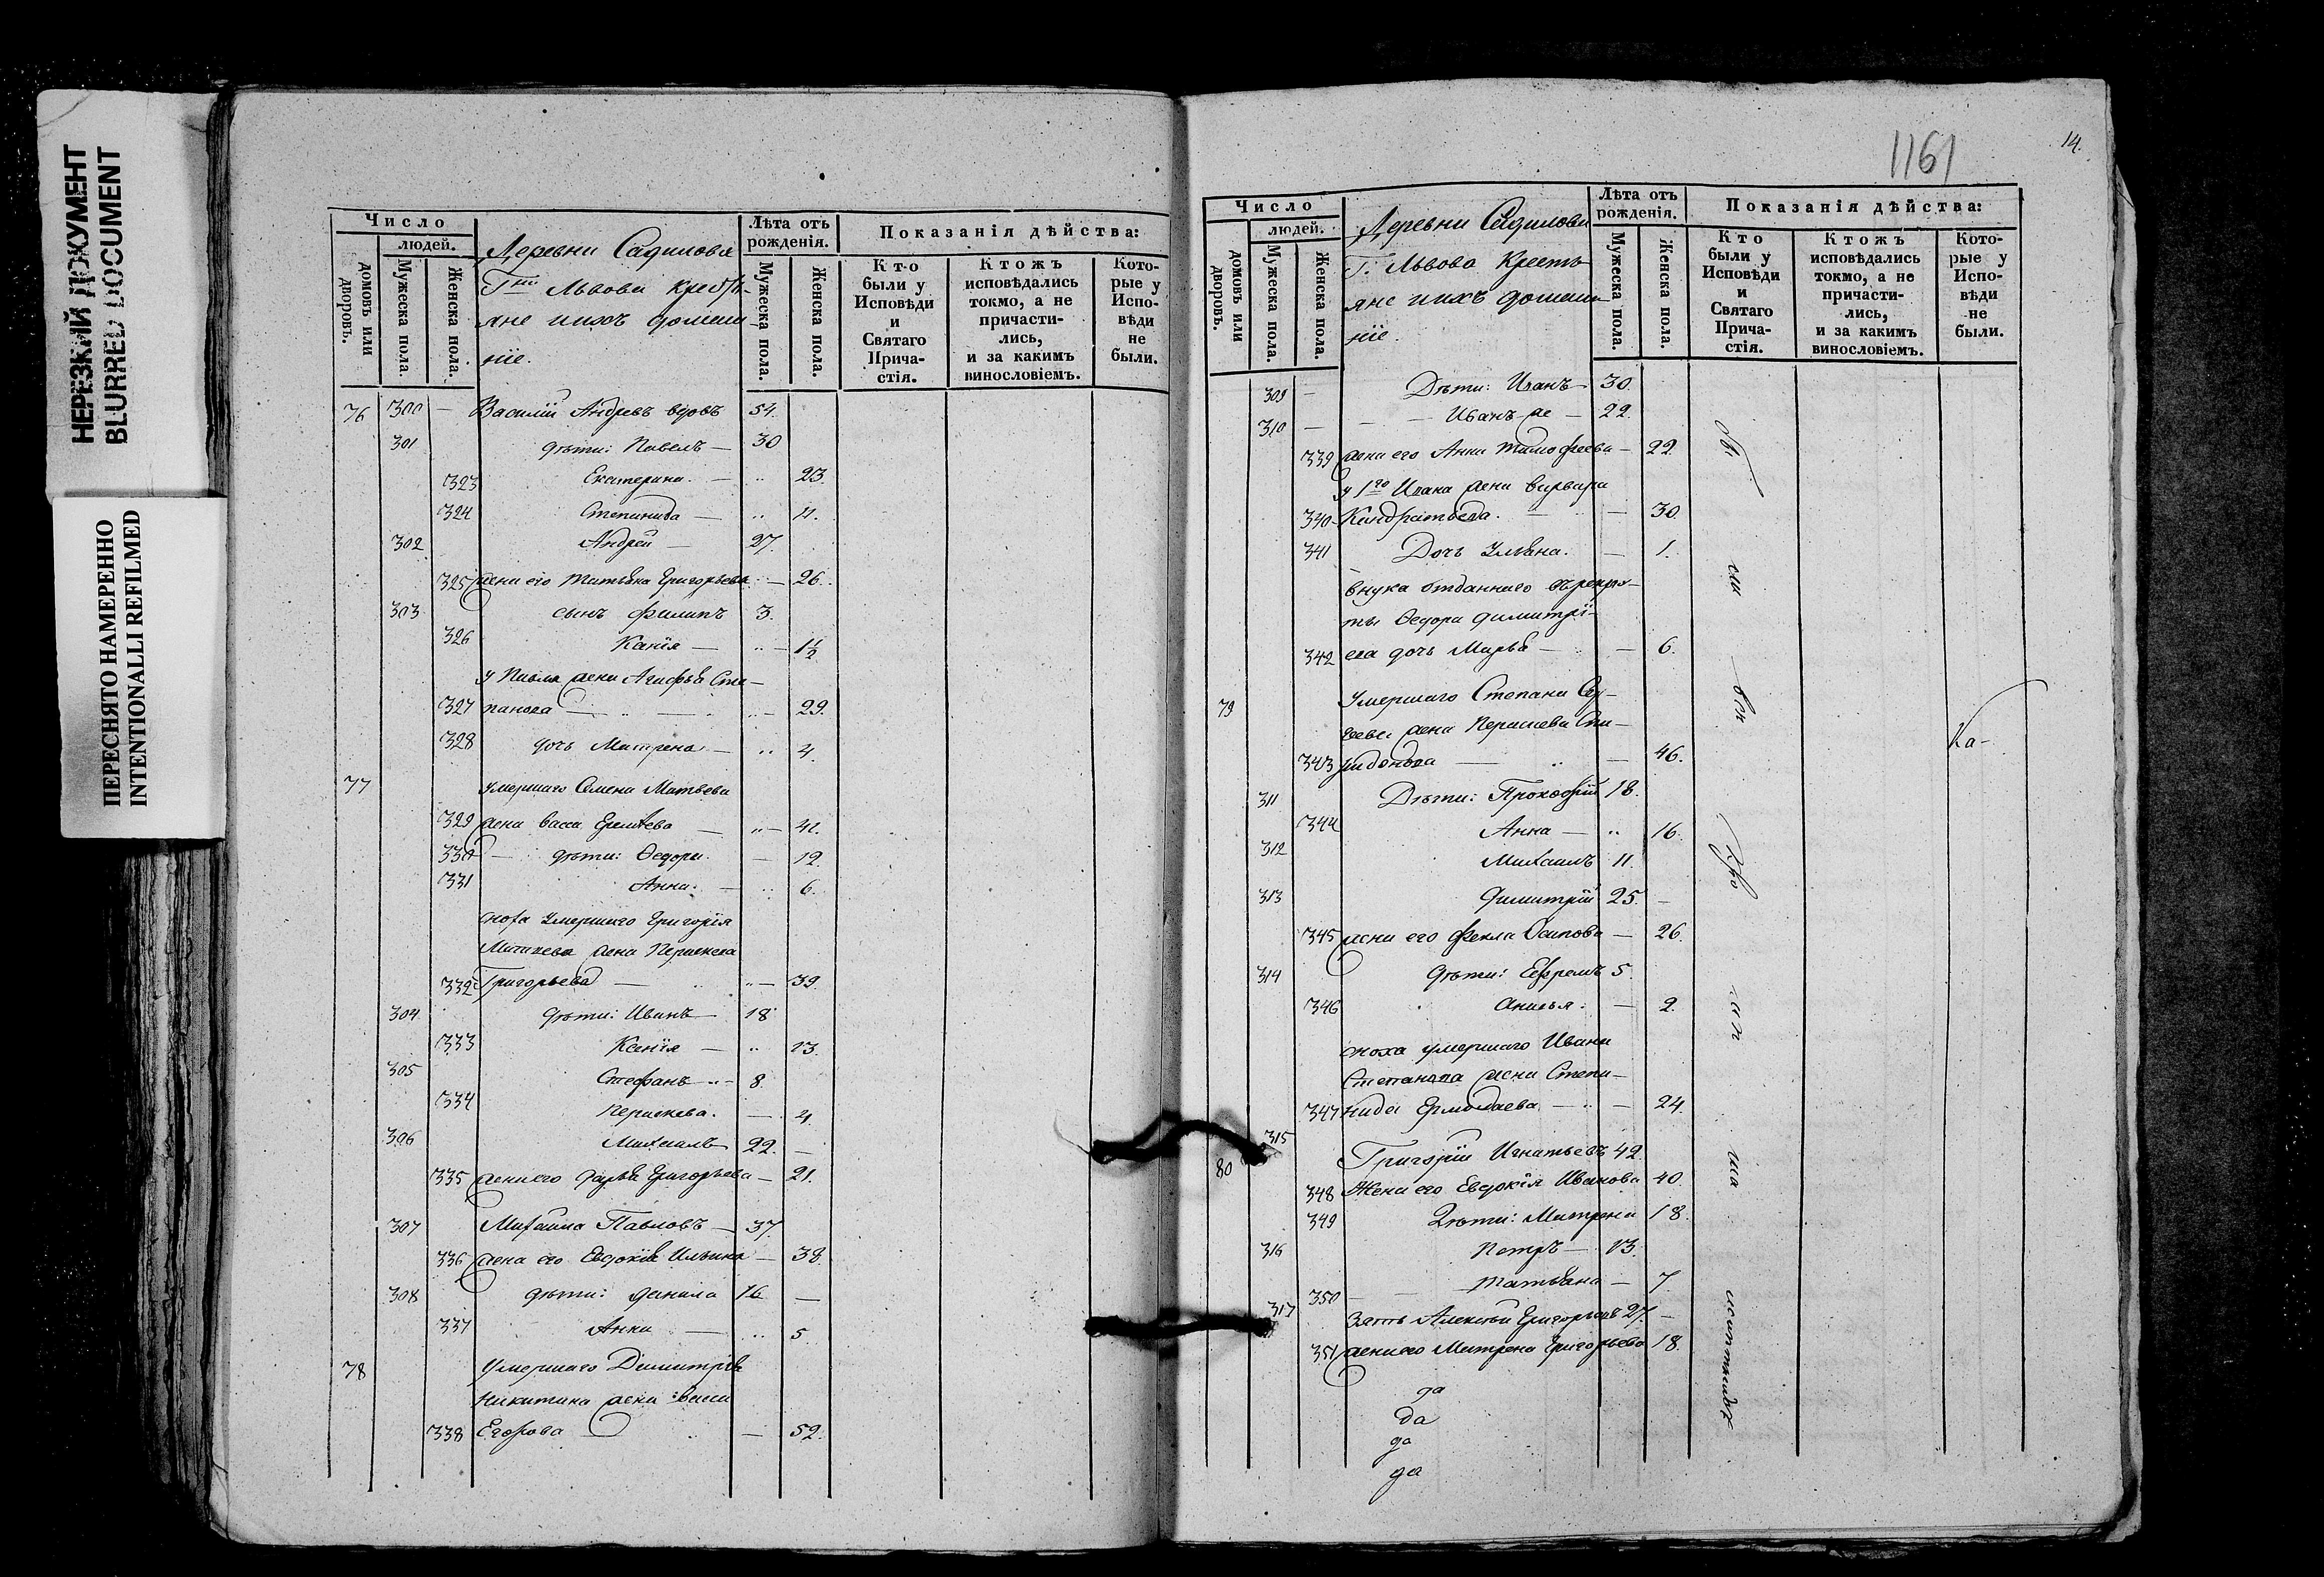 НЕРЕЗКИЙ ДОКУМЕНТ
BLURRED DOCUMENT
ПЕРЕСНЯТО НАМЕРЕННО
INTENTIONALLI REFILMED
Число
людей.
домовъ или дворовъ.
Мужеска пола.
Женска пола.
Деревни Садилова
Гна Львова крестья-
яне ихъ домаш-
ніе.
Лѣта отъ рожденія.
Мужеска пола.
Женска пола.
Показанія дѣйства:
Кто были у Исповѣди и Святаго Прича- стія.
Ктожъ исповѣдались токмо, а не причасти- лись, и за какимъ винословіемъ.
Кото- рые у Испо- вѣди не были.
76 300 — Василій Андревъ вдовъ 54.
301 дѣти: Павелъ — 30
323 Екатерина. — 23
324 Степанида — 11.
302 Андрей — 27.
325 жена его Татьяна Григорьева — 26.
303 сынъ Филипъ 3.
326 Ксенія — 1½
у Павла жена Агафья Сте-
327 панова — 29.
328 дочь Матрена — 4.
77 умершаго Семена Матвева
329 жена васса — 41.
330 — дѣти: Федора. — 12.
331 Анна. — 6.
сноха умершаго Григорія
Матвева жена Парасковья
332 Григорьева — 39.
304 дѣти: Иванъ — 18
333 Ксенія — 13.
305 Стефанъ — 8
334 Параскева. — 4.
306 Михаилъ 22. —
335 жена его дарья Григорьева — 21.
307 Михайла Павловъ — 37.
336 жена его Евдокія Ильина — 38.
308 дѣти: данила 16 —
337 Анна — 5
78 умершаго Димитрія
Никитина жена: васса
338 Егорова — 52.
1161
14.
Число
людей.
домовъ или дворовъ.
Мужеска пола.
Женска пола.
Деревни Садилова
Г. Львова Кресть
яне ихъ домаш-
ніе.
Лѣта отъ рожденія.
Мужеска пола.
Женска пола.
Показанія дѣйства:
Кто были у Исповѣди и Святаго Прича- стія.
Ктожъ исповѣдались токмо, а не причасти- лись, и за какимъ винословіемъ.
Кото- рые у Испо- вѣди не были.
309 — Дѣти: Иванъ — 30.
310 — — Иванъ же — 22.
339 жена его Анна Тимофеева — 22.
у 1го Ивана жена варвара
340 Кондратьева. — 30.
341 Дочь Ульяна. — 1.
внука отданнаго въ рекру-
ты Федора димитрі-
342 ева дочь Марья — 6.
79 умершаго Степана Сер-
геева жена Параскева Спи-
343 ридонова — 46.
311 Дѣти: Прокофій 18.
344 Анна — 16.
312 Михаилъ 11.
313 Димитрій 25. —
345 жена его Фекла Осипова — 26.
314 дѣти: Ефремъ 5.
346 Анисья. — 2.
сноха умершаго Ивана
Степанова жена Степа-
347 нида Ермолаева — 24.
80 315 Григорій Игнатьевъ 42.
348 Жена его Евдокія Иванова 40.
349 Дѣти: Матрена 18.
316 Петръ — 13.
350 Татьяна — 7
317 Зять Алексѣй Григорьевъ 27. —
351 жена его Матрена Григорьева 18.
да
да
да
да
Ка-